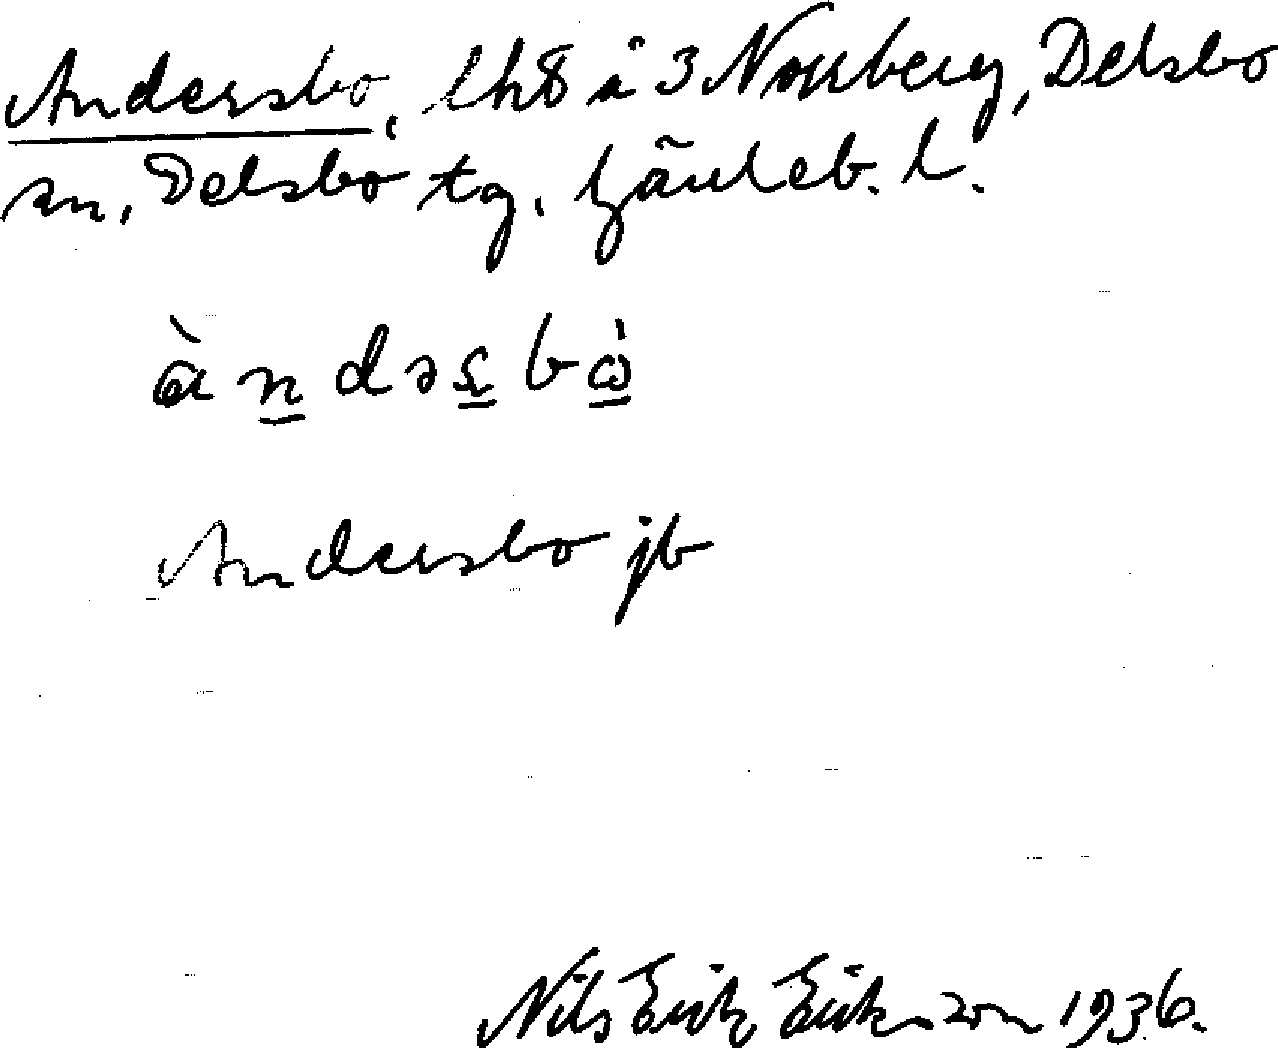 Andersbo, lh8 å 3 Norrberg, Delsbo
sn, Delsbo tg. Gävleb. l.
Andersbo jb
Nils Erik Eriksson 1936.